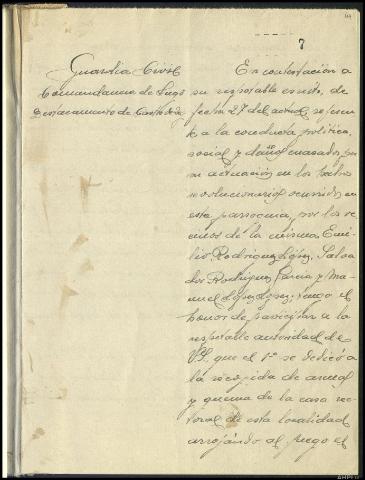 44
7
Guardia Civil
Comandancia de Lugo
Destacamento de Castro de Rey
En contestación a
su respetable escrito, de
fecha 27 del actual, referen
te a la conducta política,
social y daños causados, por
su actuación en los hechos
revolucionarios ocurridos en
esta parroquia, por los ve
cinos de la misma Emi-
lio Rodriguez López, Salva
dor Rodriguez Garcia y Ma-
nuel Lopez Lopez; tengo el
honor de participar a la
respetable autoridad de
V.S. que el 1º se dedicó a
la recogida de armas
y quema de la casa rec
toral de esta localidad
arrojándo al fuego el
AHPLU